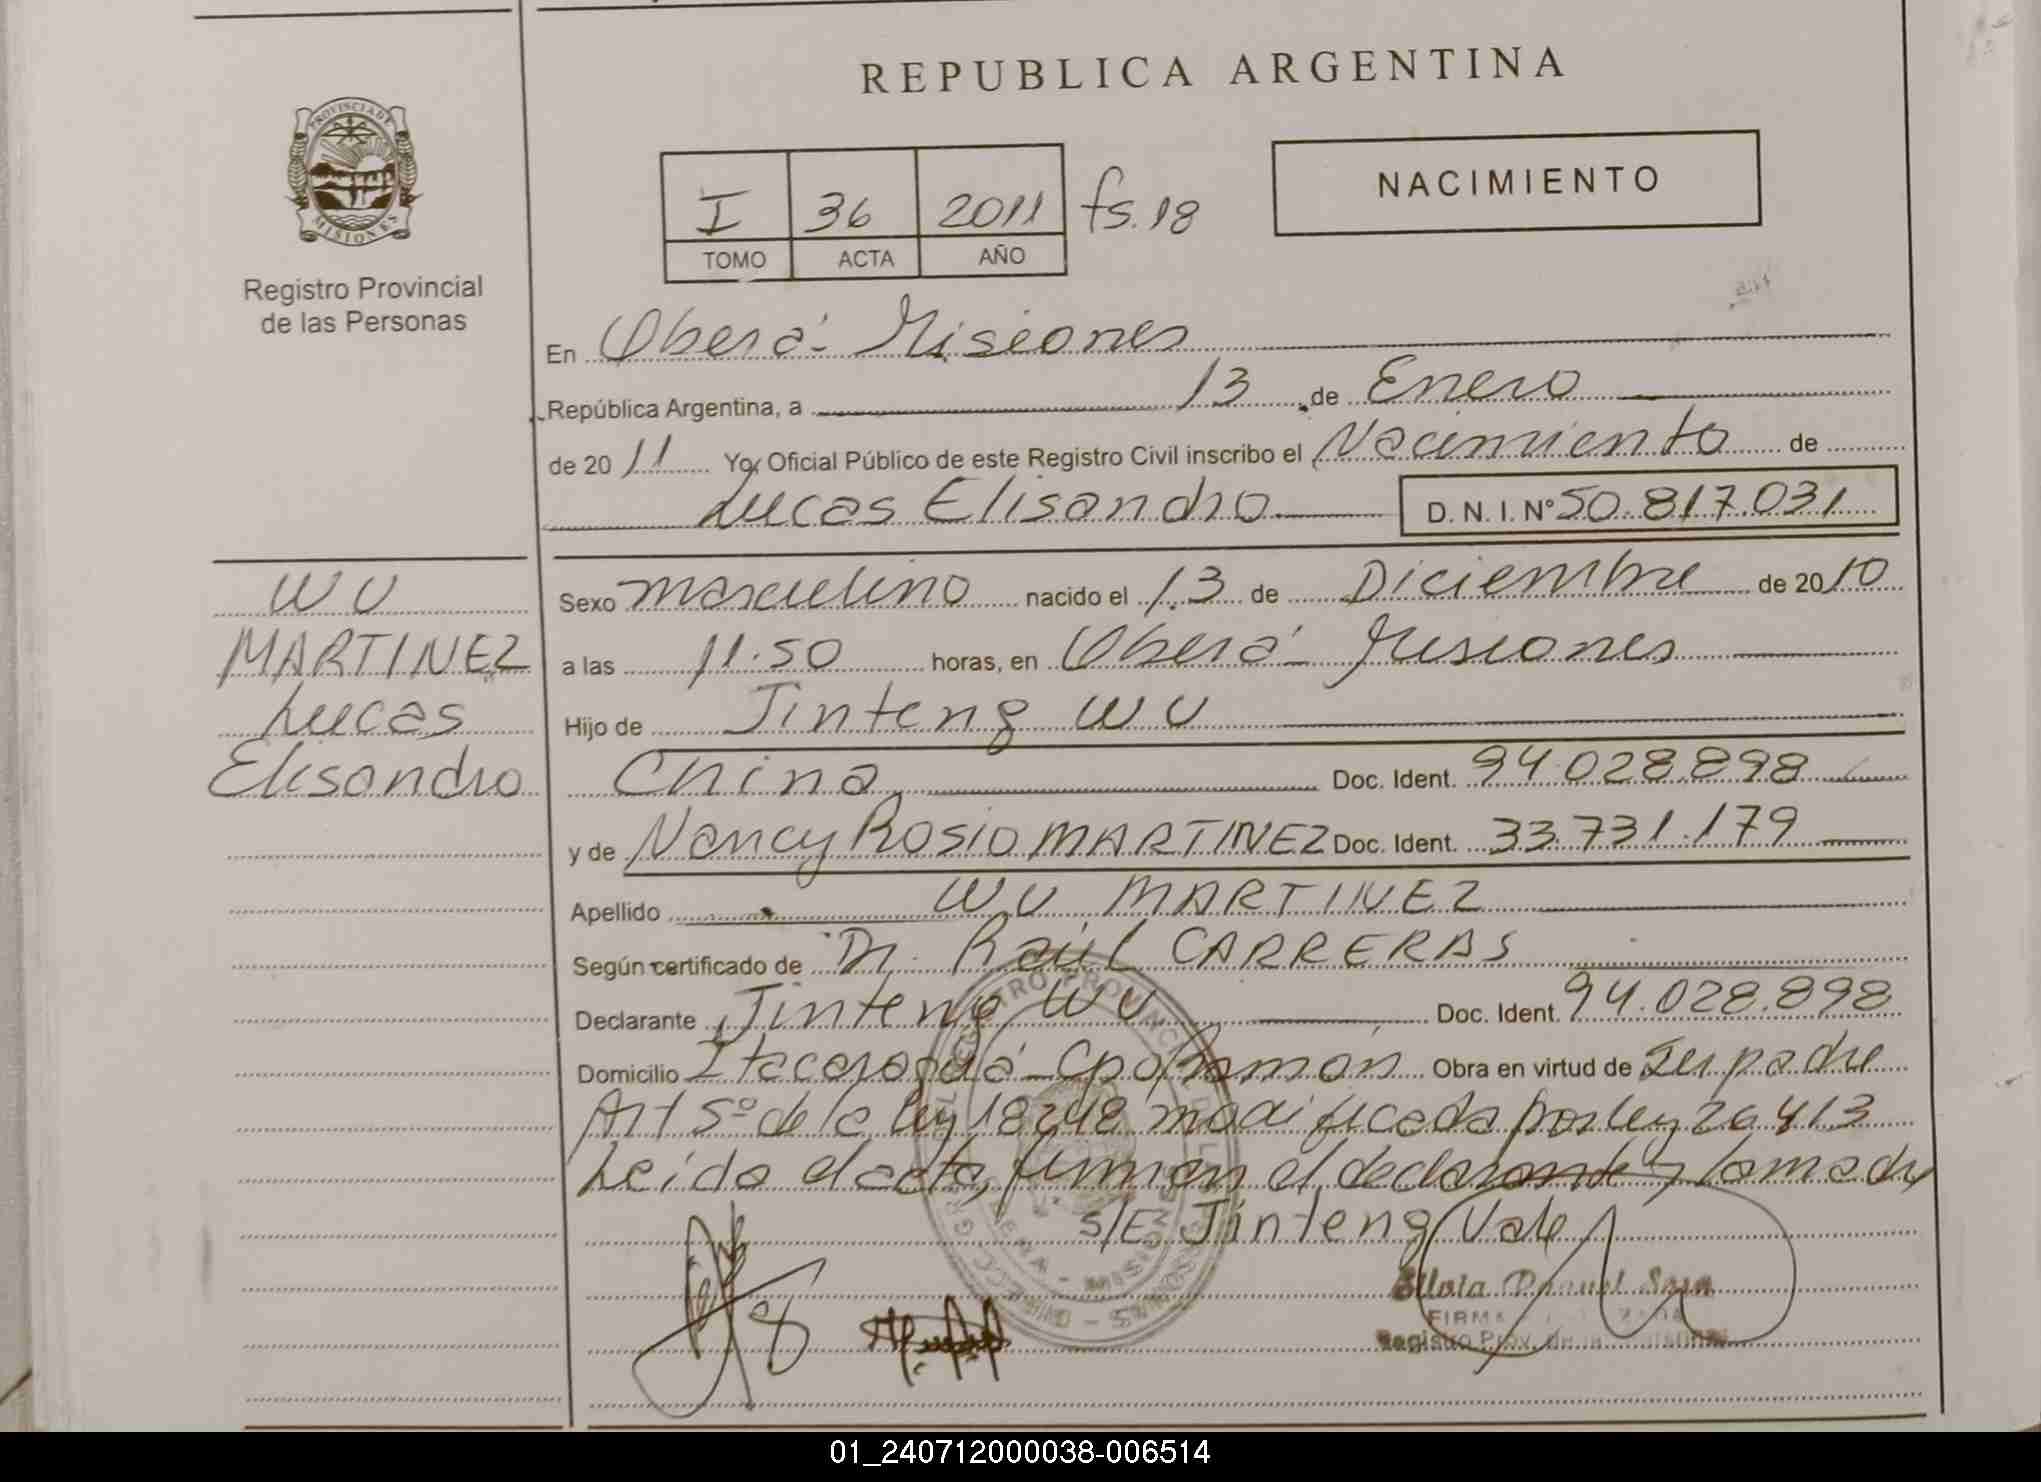 REPUBLICA ARGENTINA
PROVINCIA DE
MISIONES
Registro Provincial
de las Personas
I 36 2011 fs. 18
TOMO ACTA AÑO
NACIMIENTO
En Oberá - Misiones
República Argentina, a 13 de Enero
de 2011 Yo, Oficial Público de este Registro Civil inscribo el Nacimiento de
Lucas Elisandro D. N. I. N° 50.817.031
WU
MARTINEZ
Lucas
Elisandro
Sexo masculino nacido el 13 de Diciembre de 2010
a las 11.50 horas, en Oberá - Misiones
Hijo de Jinteng WU
China Doc. Ident. 94.028.898
y de Nancy Rosio MARTINEZ Doc. Ident. 33.731.179
Apellido WU MARTINEZ
Según certificado de Dr. Raúl CARRERAS
Declarante Jinteng WU Doc. Ident. 94.028.898
Domicilio Itacaruaré - Cpo Ramón Obra en virtud de ser padre
Art 5º de la ley 18248 modificada por ley 26413
Leído el acta, firman el declarante y la madre
S/E Jinteng Vale
Registro Prov. de las
01_240712000038-006514